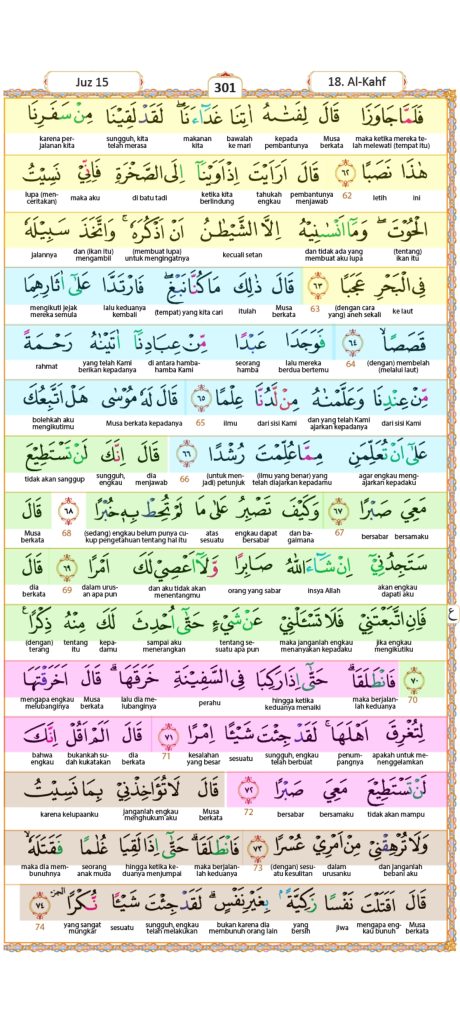 Juz 15
301
18. Al-Kahf
فَلَمَّا جَاوَزَا قَالَ لِفَتٰىهُ اٰتِنَا غَدَاۤءَنَاۖ لَقَدْ لَقِيْنَا مِنْ سَفَرِنَا
maka ketika mereka te-lah melewati (tempat itu) Musa berkata kepada pembantunya bawalah ke mari makanan kita sungguh, kita telah merasa karena per-jalanan kita
هٰذَا نَصَبًا ٦٢ قَالَ اَرَاَيْتَ اِذْ اَوَيْنَآ اِلَى الصَّخْرَةِ فَاِنِّيْ نَسِيْتُ
ini letih 62 pembantunya menjawab tahukah engkau ketika kita berlindung di batu tadi maka aku lupa (men-ceritakan)
الْحُوْتَۖ وَمَآ اَنْسٰىنِيْهُ اِلَّا الشَّيْطٰنُ اَنْ اَذْكُرَهٗۚ وَاتَّخَذَ سَبِيْلَهٗ
(tentang) ikan itu dan tidak ada yang membuat aku lupa kecuali setan (membuat lupa) untuk mengingatnya dan (ikan itu) mengambil jalannya
فِى الْبَحْرِ عَجَبًا ٦٣ قَالَ ذٰلِكَ مَا كُنَّا نَبْغِۖ فَارْتَدَّا عَلٰٓى اٰثَارِهِمَا
ke laut (dengan cara yang) aneh sekali 63 Musa berkata itulah (tempat) yang kita cari lalu keduanya kembali mengikuti jejak mereka semula
قَصَصًاۙ ٦٤ فَوَجَدَا عَبْدًا مِّنْ عِبَادِنَآ اٰتَيْنٰهُ رَحْمَةً
(dengan) membelah (melalui laut) 64 lalu mereka berdua bertemu seorang hamba di antara hamba-hamba Kami yang telah Kami berikan kepadanya rahmat
مِّنْ عِنْدِنَا وَعَلَّمْنٰهُ مِنْ لَّدُنَّا عِلْمًا ٦٥ قَالَ لَهٗ مُوْسٰى هَلْ اَتَّبِعُكَ
dari sisi Kami dan yang telah Kami ajarkan kepadanya dari sisi Kami ilmu 65 Musa berkata kepadanya bolehkah aku mengikutimu
عَلٰٓى اَنْ تُعَلِّمَنِ مِمَّا عُلِّمْتَ رُشْدًا ٦٦ قَالَ اِنَّكَ لَنْ تَسْتَطِيْعَ
agar engkau meng-ajarkan kepadaku (ilmu yang benar) yang telah diajarkan kepadamu (untuk men-jadi) petunjuk 66 dia menjawab sungguh, engkau tidak akan sanggup
مَعِيَ صَبْرًا ٦٧ وَكَيْفَ تَصْبِرُ عَلٰى مَا لَمْ تُحِطْ بِهٖ خُبْرًا ٦٨ قَالَ
bersamaku bersabar 67 dan ba-gaimana engkau dapat bersabar atas sesuatu (sedang) engkau belum punya cu-kup pengetahuan tentang hal itu 68 Musa berkata
سَتَجِدُنِيْٓ اِنْ شَاۤءَ اللّٰهُ صَابِرًا وَّلَآ اَعْصِيْ لَكَ اَمْرًا ٦٩ قَالَ
akan engkau dapati aku insya Allah orang yang sabar dan aku tidak akan menentangmu dalam urus-an apa pun 69 dia berkata
فَاِنِ اتَّبَعْتَنِيْ فَلَا تَسْـَٔلْنِيْ عَنْ شَيْءٍ حَتّٰٓى اُحْدِثَ لَكَ مِنْهُ ذِكْرًا ع
jika engkau mengikutiku maka janganlah engkau menanyakan kepadaku tentang se-suatu apa pun sampai aku menerangkan kepa-damu tentang itu (dengan) terang
٧٠ فَانْطَلَقَاۗ حَتّٰٓى اِذَا رَكِبَا فِى السَّفِيْنَةِ خَرَقَهَاۗ قَالَ اَخَرَقْتَهَا
70 maka berjalan-lah keduanya hingga ketika keduanya menaiki perahu lalu dia me-lubanginya Musa berkata mengapa engkau melubanginya
لِتُغْرِقَ اَهْلَهَاۚ لَقَدْ جِئْتَ شَيْـًٔا اِمْرًا ٧١ قَالَ اَلَمْ اَقُلْ اِنَّكَ
apakah untuk me-nenggelamkan penum-pangnya sungguh, engkau telah berbuat sesuatu kesalahan yang besar 71 dia berkata bukankah su-dah kukatakan bahwa engkau
لَنْ تَسْتَطِيْعَ مَعِيَ صَبْرًا ٧٢ قَالَ لَا تُؤَاخِذْنِيْ بِمَا نَسِيْتُ
tidak akan mampu bersamaku bersabar 72 Musa berkata janganlah engkau menghukum aku karena kelupaanku
وَلَا تُرْهِقْنِيْ مِنْ اَمْرِيْ عُسْرًا ٧٣ فَانْطَلَقَاۗ حَتّٰٓى اِذَا لَقِيَا غُلٰمًا فَقَتَلَهٗۙ
dan janganlah bebani aku dalam urusanku (dengan) sesu-atu kesulitan 73 maka berjalan-lah keduanya hingga ketika ke-duanya menjumpai seorang anak muda maka dia mem-bunuhnya
قَالَ اَقَتَلْتَ نَفْسًا زَكِيَّةً ۢبِغَيْرِ نَفْسٍۗ لَقَدْ جِئْتَ شَيْـًٔا نُّكْرًا الجزء ٧٤
Musa berkata mengapa eng-kau bunuh jiwa yang bersih bukan karena dia membunuh orang lain sungguh, engkau telah melakukan sesuatu yang sangat mungkar 74